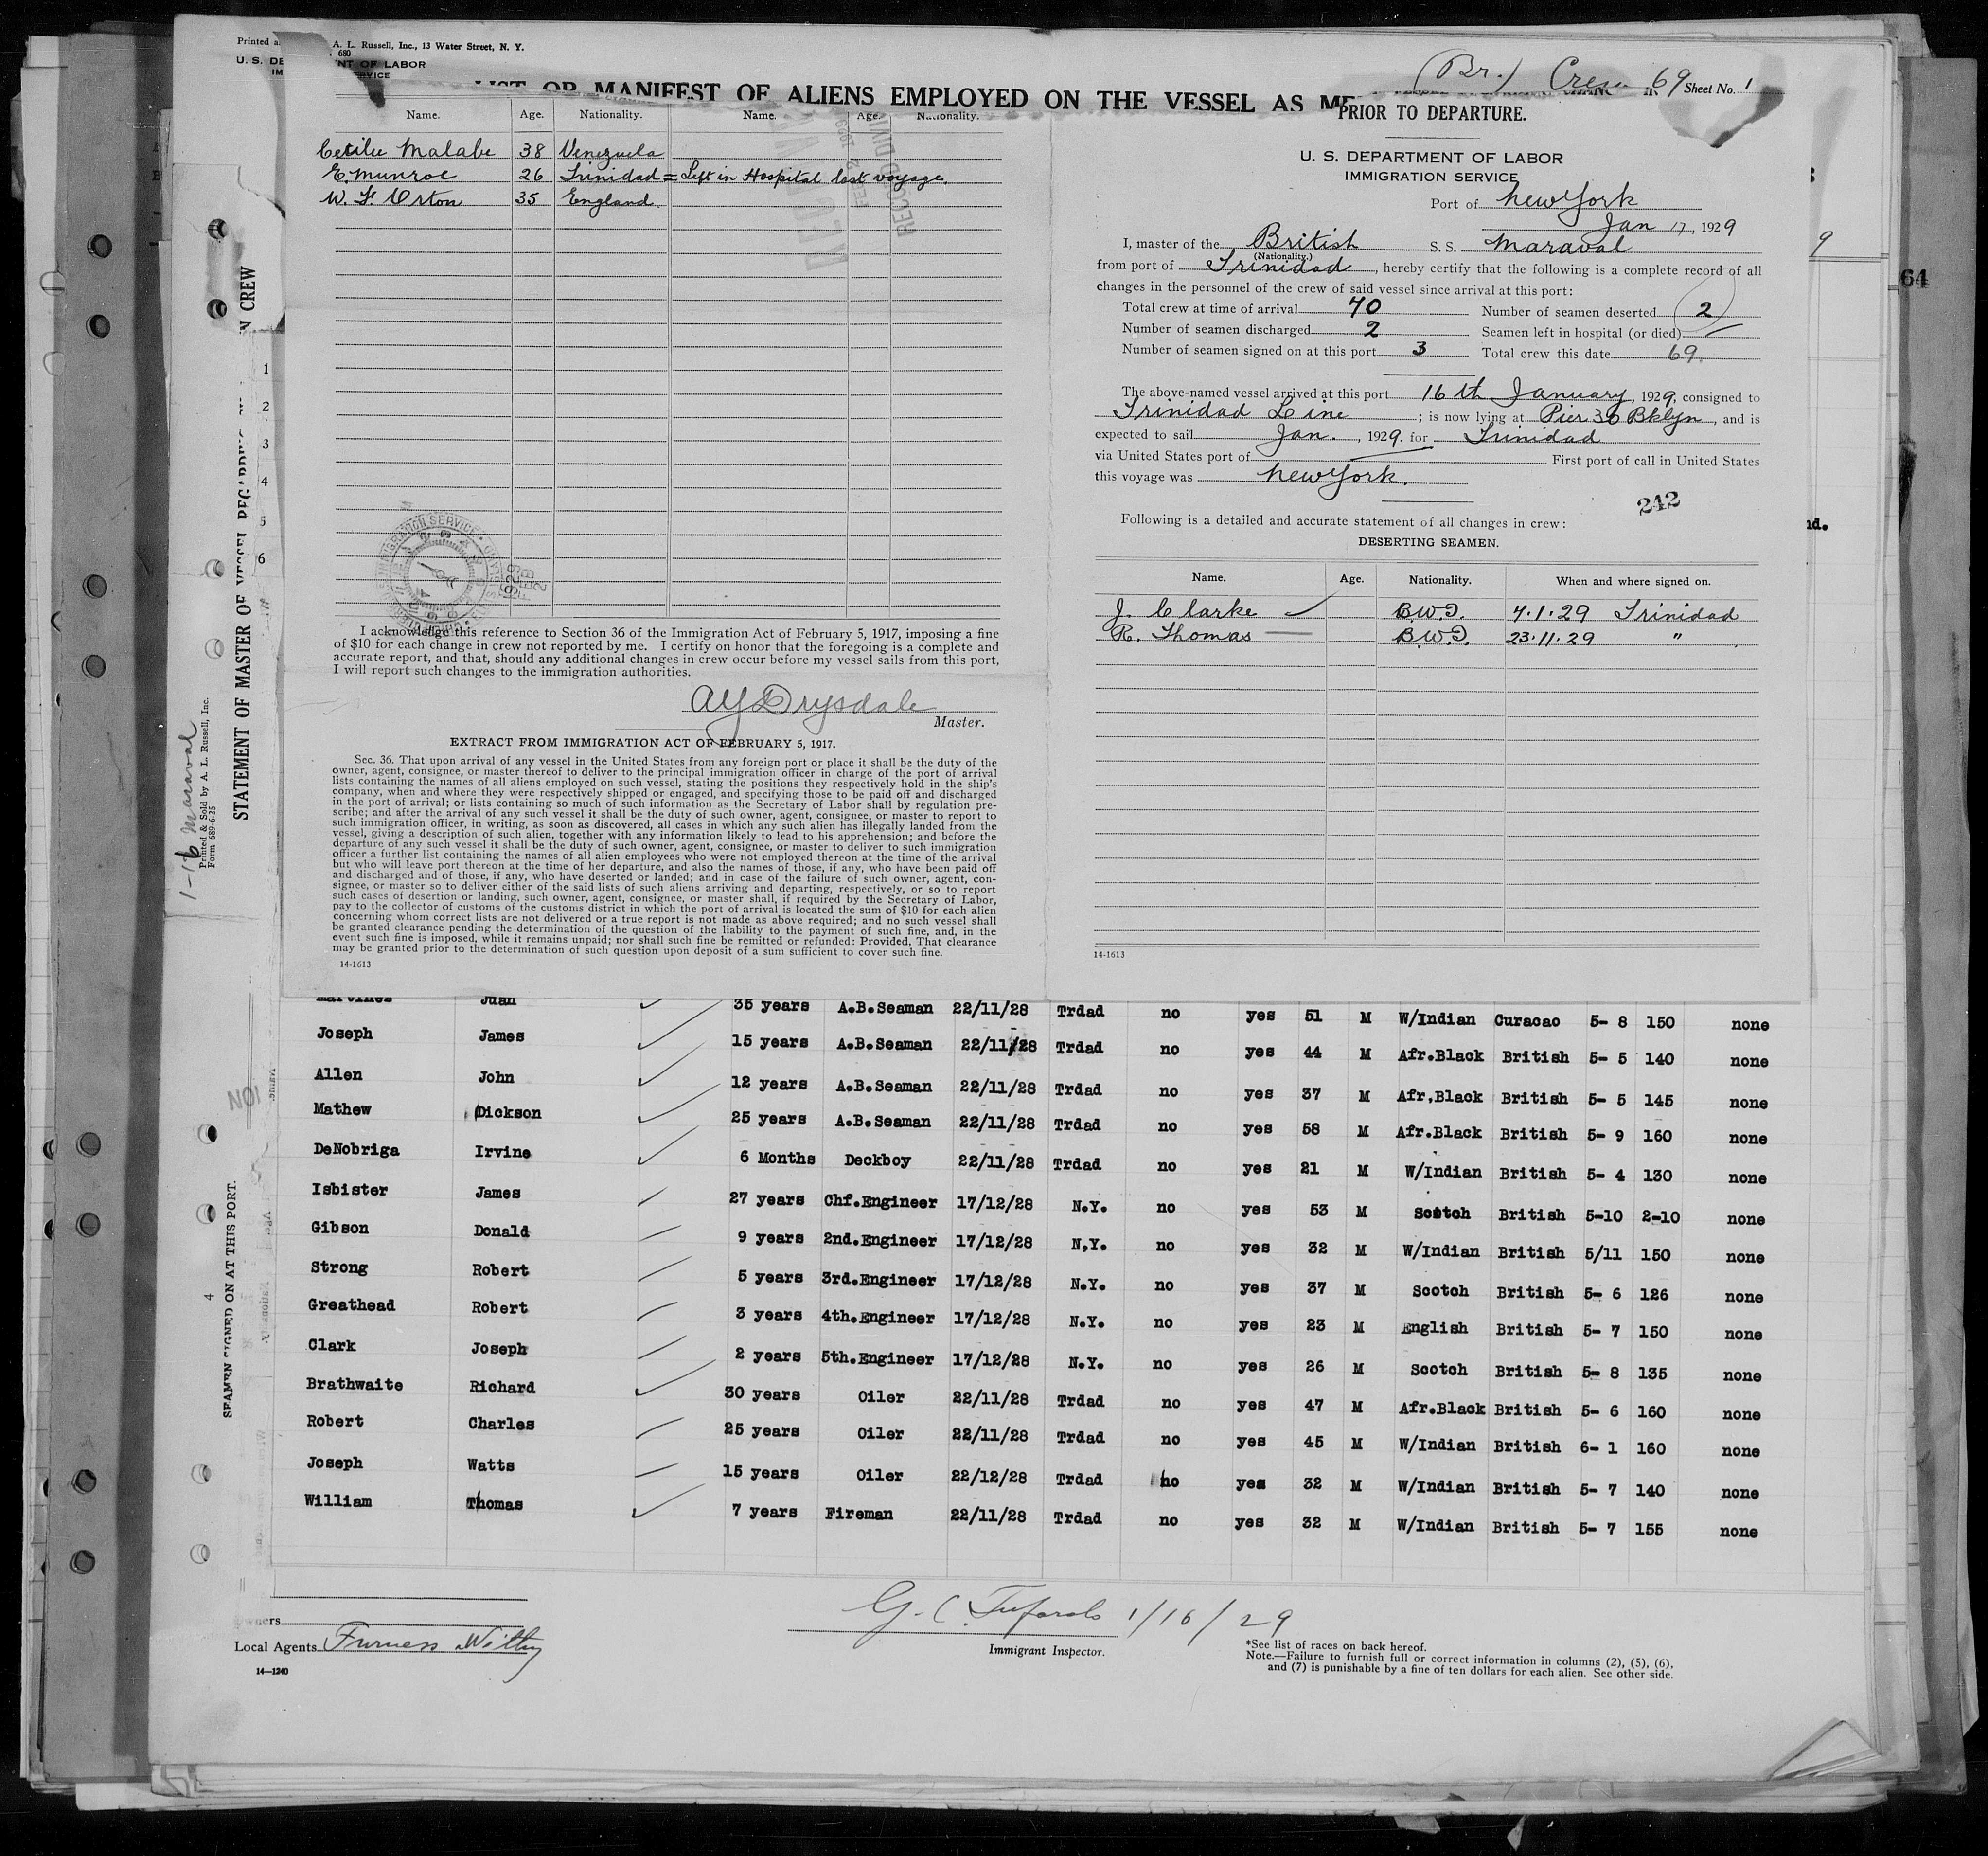 Printed a
A. L. Russell, Inc., 13 Water Street, N. Y.
680
U. S. DE NT OF LABOR
IM RVICE
LIST OR MANIFEST OF ALIENS EMPLOYED ON THE VESSEL AS ME
(Br.) Crew 69 Sheet No. 1
Name. Age. Nationality. Name. Age. Nationality.
Cecilie Malabe 38 Venezuela
E. Munroe 26 Trinidad = Left in Hospital last voyage.
W. F. Orton 35 England
RECORD DIVI
I acknowledge this reference to Section 36 of the Immigration Act of February 5, 1917, imposing a fine
of $10 for each change in crew not reported by me. I certify on honor that the foregoing is a complete and
accurate report, and that, should any additional changes in crew occur before my vessel sails from this port,
I will report such changes to the immigration authorities.
AY Drysdale
Master.
EXTRACT FROM IMMIGRATION ACT OF FEBRUARY 5, 1917.
Sec. 36. That upon arrival of any vessel in the United States from any foreign port or place it shall be the duty of the
owner, agent, consignee, or master thereof to deliver to the principal immigration officer in charge of the port of arrival
lists containing the names of all aliens employed on such vessel, stating the positions they respectively hold in the ship's
company, when and where they were respectively shipped or engaged, and specifying those to be paid off and discharged
in the port of arrival; or lists containing so much of such information as the Secretary of Labor shall by regulation pre-
scribe; and after the arrival of any such vessel it shall be the duty of such owner, agent, consignee, or master to report to
such immigration officer, in writing, as soon as discovered, all cases in which any such alien has illegally landed from the
vessel, giving a description of such alien, together with any information likely to lead to his apprehension; and before the
departure of any such vessel it shall be the duty of such owner, agent, consignee, or master to deliver to such immigration
officer a further list containing the names of all alien employees who were not employed thereon at the time of the arrival
but who will leave port thereon at the time of her departure, and also the names of those, if any, who have been paid off
and discharged and of those, if any, who have deserted or landed; and in case of the failure of such owner, agent, con-
signee, or master so to deliver either of the said lists of such aliens arriving and departing, respectively, or so to report
such cases of desertion or landing, such owner, agent, consignee, or master shall, if required by the Secretary of Labor,
pay to the collector of customs of the customs district in which the port of arrival is located the sum of $10 for each alien
concerning whom correct lists are not delivered or a true report is not made as above required; and no such vessel shall
be granted clearance pending the determination of the question of the liability to the payment of such fine, and, in the
event such fine is imposed, while it remains unpaid; nor shall such fine be remitted or refunded: Provided, That clearance
may be granted prior to the determination of such question upon deposit of a sum sufficient to cover such fine.
14-1613
PRIOR TO DEPARTURE.
U. S. DEPARTMENT OF LABOR
IMMIGRATION SERVICE
Port of New York
Jan 17, 1929
I, master of the British S. S. Maraval
(Nationality.)
from port of Trinidad, hereby certify that the following is a complete record of all
changes in the personnel of the crew of said vessel since arrival at this port:
Total crew at time of arrival 70 Number of seamen deserted 2
Number of seamen discharged 2 Seamen left in hospital (or died) —
Number of seamen signed on at this port 3 Total crew this date 69.
The above-named vessel arrived at this port 16th January, 1929, consigned to
Trinidad Line; is now lying at Pier 36 Bklyn, and is
expected to sail Jan., 1929. for Trinidad
via United States port of — First port of call in United States
this voyage was New York.
242
Following is a detailed and accurate statement of all changes in crew:
DESERTING SEAMEN.
Name. Age. Nationality. When and where signed on.
J. Clarke B.W.I. 4.1.29 Trinidad
R. Thomas B.W.I. 23.11.29 "
14-1613
9
64
nd.
STATEMENT OF MASTER OF VESSEL REGARDING
N CREW
1
2
3
4
5
6
1-16 Maraval
Printed & Sold by A. L. Russell, Inc.
Form 689-6-25
SEAMEN SIGNED ON AT THIS PORT.
4
Martines Juan 35 years A.B.Seaman 22/11/28 Trdad no yes 51 M W/Indian Curacao 5- 8 150 none
Joseph James 15 years A.B.Seaman 22/11/28 Trdad no yes 44 M Afr.Black British 5- 5 140 none
Allen John 12 years A.B.Seaman 22/11/28 Trdad no yes 37 M Afr,Black British 5- 5 145 none
Mathew Dickson 25 years A.B.Seaman 22/11/28 Trdad no yes 58 M Afr.Black British 5- 9 160 none
DeNobriga Irvine 6 Months Deckboy 22/11/28 Trdad no yes 21 M W/Indian British 5- 4 130 none
Isbister James 27 years Chf.Engineer 17/12/28 N.Y. no yes 53 M Scotch British 5-10 2-10 none
Gibson Donald 9 years 2nd.Engineer 17/12/28 N,Y. no yes 32 M W/Indian British 5/11 150 none
Strong Robert 5 years 3rd.Engineer 17/12/28 N.Y. no yes 37 M Scotch British 5- 6 126 none
Greathead Robert 3 years 4th.Engineer 17/12/28 N.Y. no yes 23 M English British 5- 7 150 none
Clark Joseph 2 years 5th.Engineer 17/12/28 N.Y. no yes 26 M Scotch British 5- 8 135 none
Brathwaite Richard 30 years Oiler 22/11/28 Trdad no yes 47 M Afr.Black British 5- 6 160 none
Robert Charles 25 years Oiler 22/11/28 Trdad no yes 45 M W/Indian British 6- 1 160 none
Joseph Watts 15 years Oiler 22/12/28 Trdad no yes 32 M W/Indian British 5- 7 140 none
William Thomas 7 years Fireman 22/11/28 Trdad no yes 32 M W/Indian British 5- 7 155 none
Owners
Local Agents Furness Withy
14—1240
1/16/29
Immigrant Inspector.
*See list of races on back hereof.
Note.—Failure to furnish full or correct information in columns (2), (5), (6),
and (7) is punishable by a fine of ten dollars for each alien. See other side.